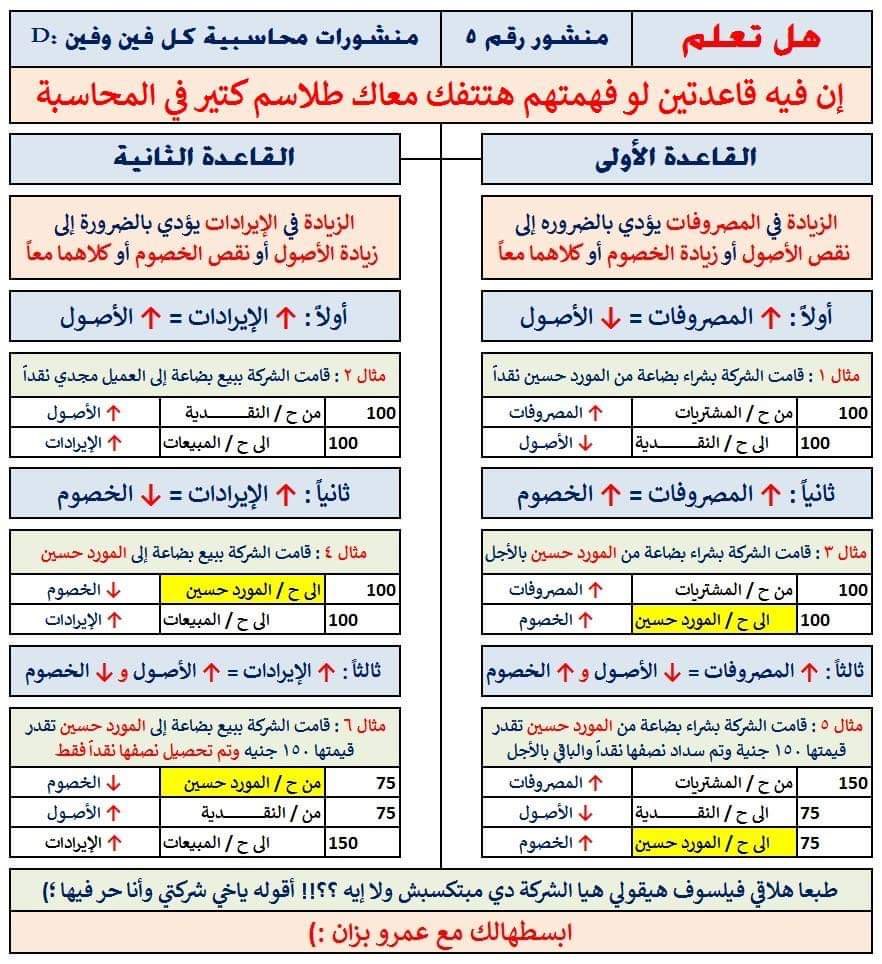 هل تعلم
منشور رقم ٥
منشورات محاسبية كل فين وفين :D
إن فيه قاعدتين لو فهمتهم هتتفك معاك طلاسم كتير في المحاسبة
القاعدة الأولى
الزيادة في المصروفات يؤدي بالضروره إلى
نقص الأصول أو زيادة الخصوم أو كلاهما معاً
أولاً : ↑ المصروفات = ↓ الأصول
مثال ١ : قامت الشركة بشراء بضاعة من المورد حسين نقداً
100 من ح / المشتريات ↑ المصروفات
100 الى ح / النقدية ↓ الأصول
ثانياً : ↑ المصروفات = ↑ الخصوم
مثال ٣ : قامت الشركة بشراء بضاعة من المورد حسين بالأجل
100 من ح / المشتريات ↑ المصروفات
100 الى ح / المورد حسين ↑ الخصوم
ثالثاً : ↑ المصروفات = ↓ الأصول و ↑ الخصوم
مثال ٥ : قامت الشركة بشراء بضاعة من المورد حسين تقدر
قيمتها ١٥٠ جنية وتم سداد نصفها نقداً والباقي بالأجل
150 من ح / المشتريات ↑ المصروفات
75 الى ح / النقدية ↓ الأصول
75 الى ح / المورد حسين ↑ الخصوم
القاعدة الثانية
الزيادة في الإيرادات يؤدي بالضرورة إلى
زيادة الأصول أو نقص الخصوم أو كلاهما معاً
أولاً : ↑ الإيرادات = ↑ الأصول
مثال ٢ : قامت الشركة ببيع بضاعة إلى العميل مجدي نقداً
100 من ح / النقدية ↑ الأصول
100 الى ح / المبيعات ↑ الإيرادات
ثانياً : ↑ الإيرادات = ↓ الخصوم
مثال ٤ : قامت الشركة ببيع بضاعة إلى المورد حسين
100 الى ح / المورد حسين ↓ الخصوم
100 الى ح / المبيعات ↑ الإيرادات
ثالثاً : ↑ الإيرادات = ↑ الأصول و ↓ الخصوم
مثال ٦ : قامت الشركة ببيع بضاعة إلى المورد حسين تقدر
قيمتها ١٥٠ جنيه وتم تحصيل نصفها نقداً فقط
75 من ح / المورد حسين ↓ الخصوم
75 من / النقدية ↑ الأصول
150 الى ح / المبيعات ↑ الإيرادات
طبعا هلاقي فيلسوف هيقولي هيا الشركة دي مبتكسبش ولا إيه ؟؟!! أقوله ياخي شركتي وأنا حر فيها ؛)
ابسطهالك مع عمرو بزان :)